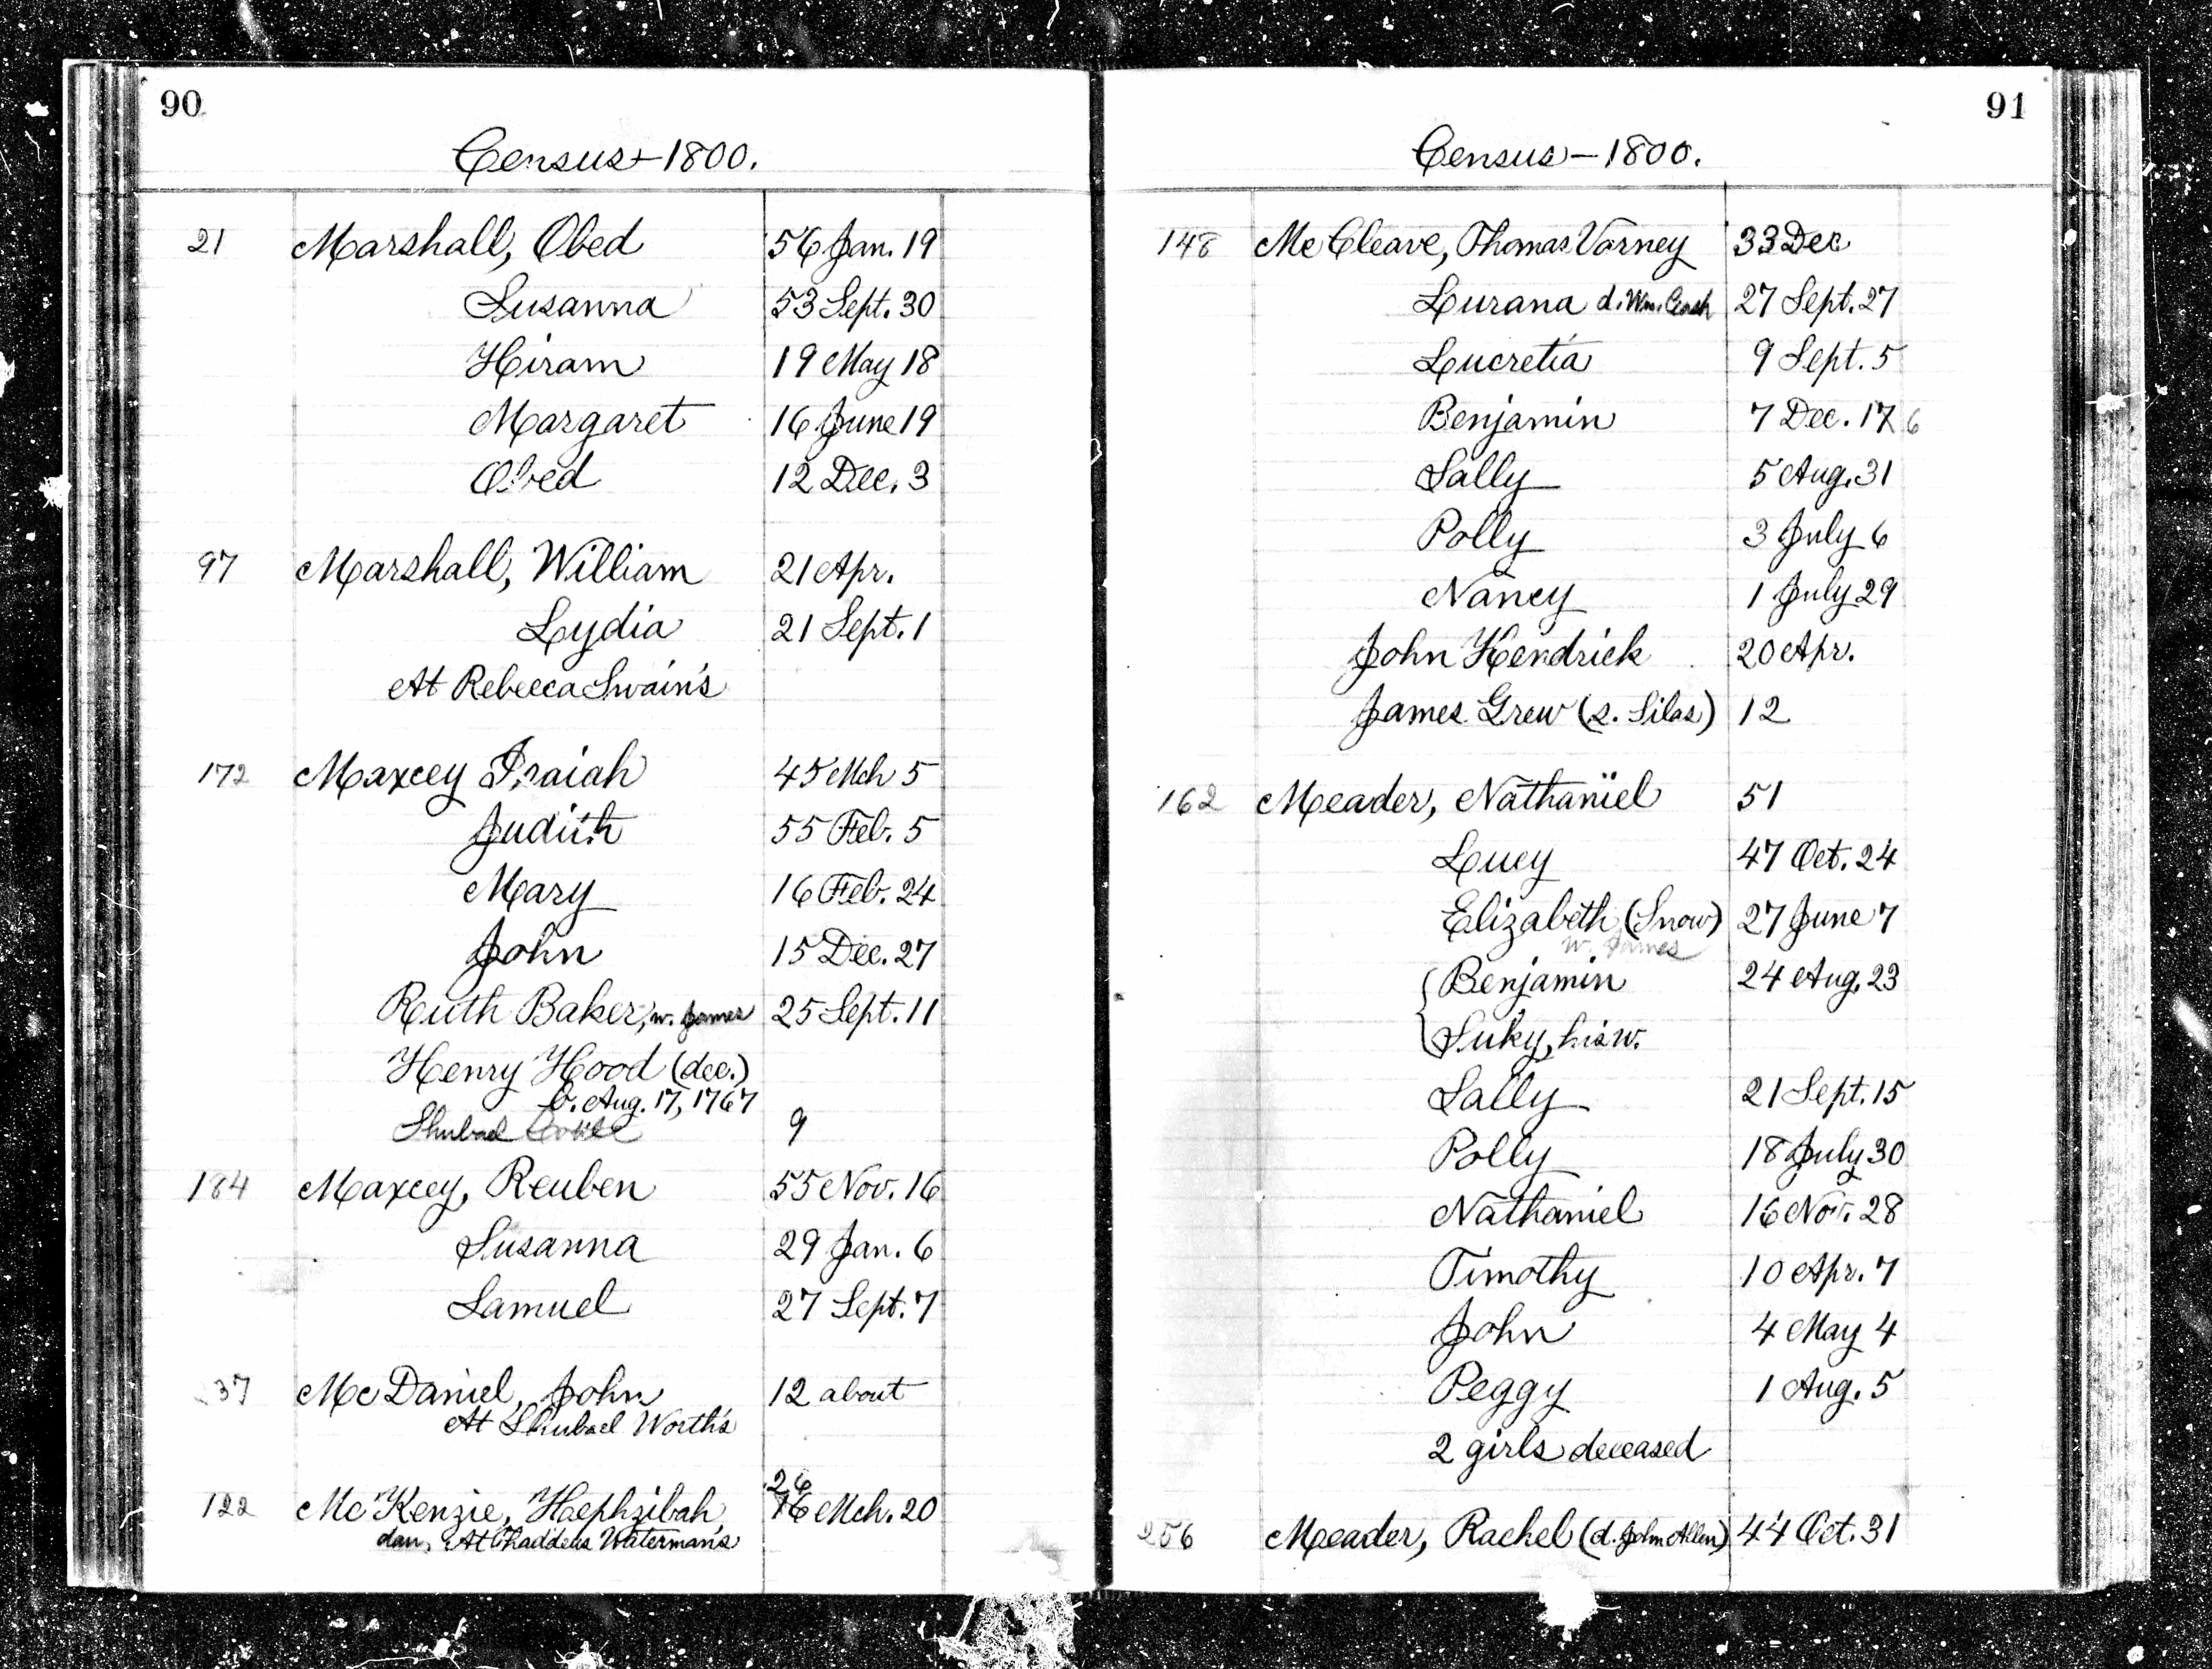 90
Census-1800.
21 Marshall, Obed 56 Jan. 19
Susanna 53 Sept. 30
Hiram 19 May 18
Margaret 16 June 19
Obed 12 Dec. 3
97 Marshall, William 21 Apr.
Lydia 21 Sept. 1
At Rebecca Swain's
172 Maxcey Isaiah 45 Mch 5
Judith 55 Feb. 5
Mary 16 Feb. 24
John 15 Dec. 27
Ruth Baker, w. James 25 Sept. 11
Henry Hood (dec.)
b. Aug. 17, 1767
Shubael 9
184 Maxcey, Reuben 55 Nov. 16
Susanna 29 Jan. 6
Samuel 27 Sept. 7
37 McDaniel, John 12 about
At Shubael Worth's
26
122 McKenzie, Hephzibah 16 Mch. 20
dau. At Thaddeus Waterman's
91
Census-1800.
148 McCleave, Thomas Varney 33 Dec
Lurana d. Wm. Coash 27 Sept. 27
Lucretia 9 Sept. 5
Benjamin 7 Dec. 17 6
Sally 5 Aug. 31
Polly 3 July 6
Nancy 1 July 29
John Kendrick 20 Apr.
James Grew (s. Silas) 12
162 Meader, Nathaniel 51
Lucy 47 Oct. 24
Elizabeth (Snow) 27 June 7
w. James
Benjamin 24 Aug. 23
Suky, his w.
Sally 21 Sept. 15
Polly 18 July 30
Nathaniel 16 Nov. 28
Timothy 10 Apr. 7
John 4 May 4
Peggy 1 Aug. 5
2 girls deceased
256 Meader, Rachel (d. John Allen) 44 Oct. 31